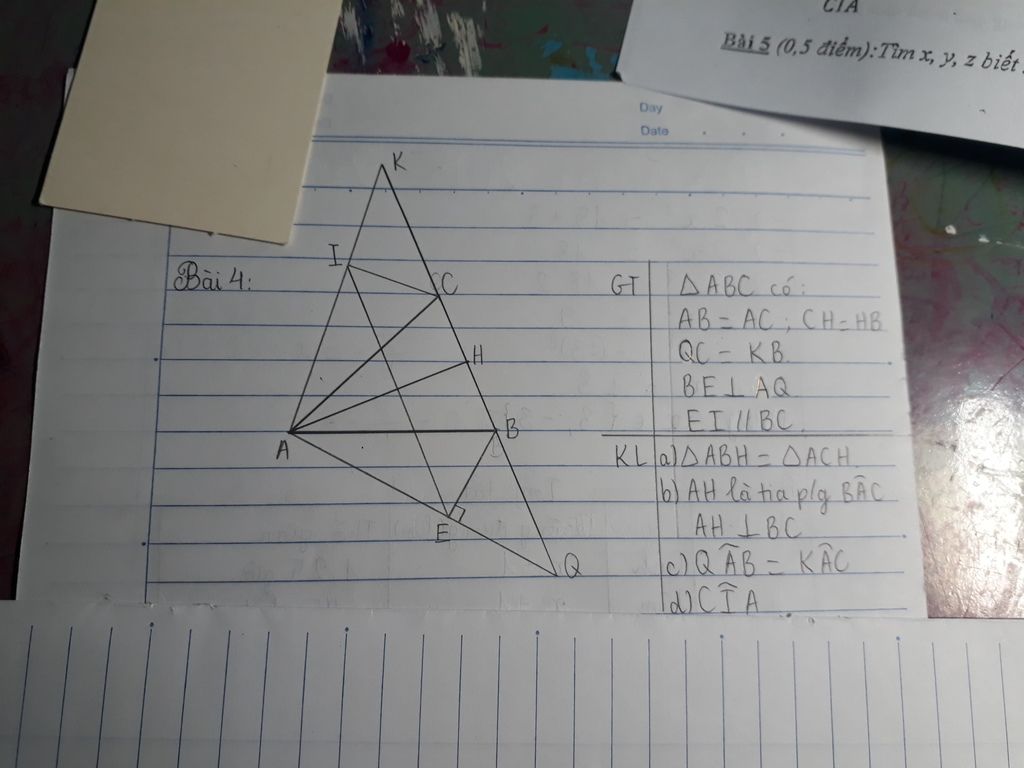 CIA
Bài 5 (0,5 điểm): Tìm x, y, z biết
Day
Date
K
I
C
H
A
B
E
Q
Bài 4:
GT
∆ABC có:
AB = AC ; CH = HB
QC = KB
BE ⊥ AQ
EI // BC
KL
a) ∆ABH = ∆ACH
b) AH là tia p/g BÂC
AH ⊥ BC
c) QÂB = KÂC
d) CÎA